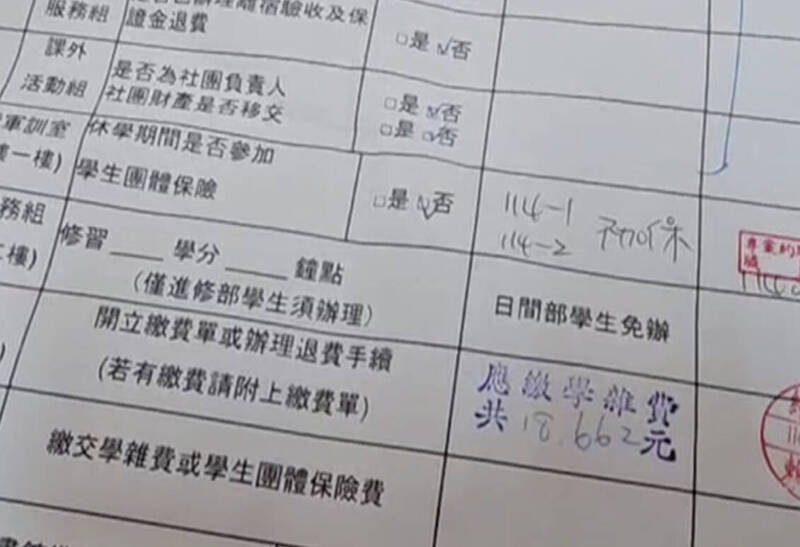 服務組
證金退費
□是 ☑否
課外
活動組
是否為社團負責人
社團財產是否移交
□是 ☑否
□是 ☑否
軍訓室
樓一樓)
休學期間是否參加
學生團體保險
□是 ☑否
114-1
114-2
不加保
務組
樓)
修習____學分____鐘點
(僅進修部學生須辦理)
日間部學生免辦
開立繳費單或辦理退費手續
(若有繳費請附上繳費單)
應繳學雜費
共18,662元
繳交學雜費或學生團體保險費